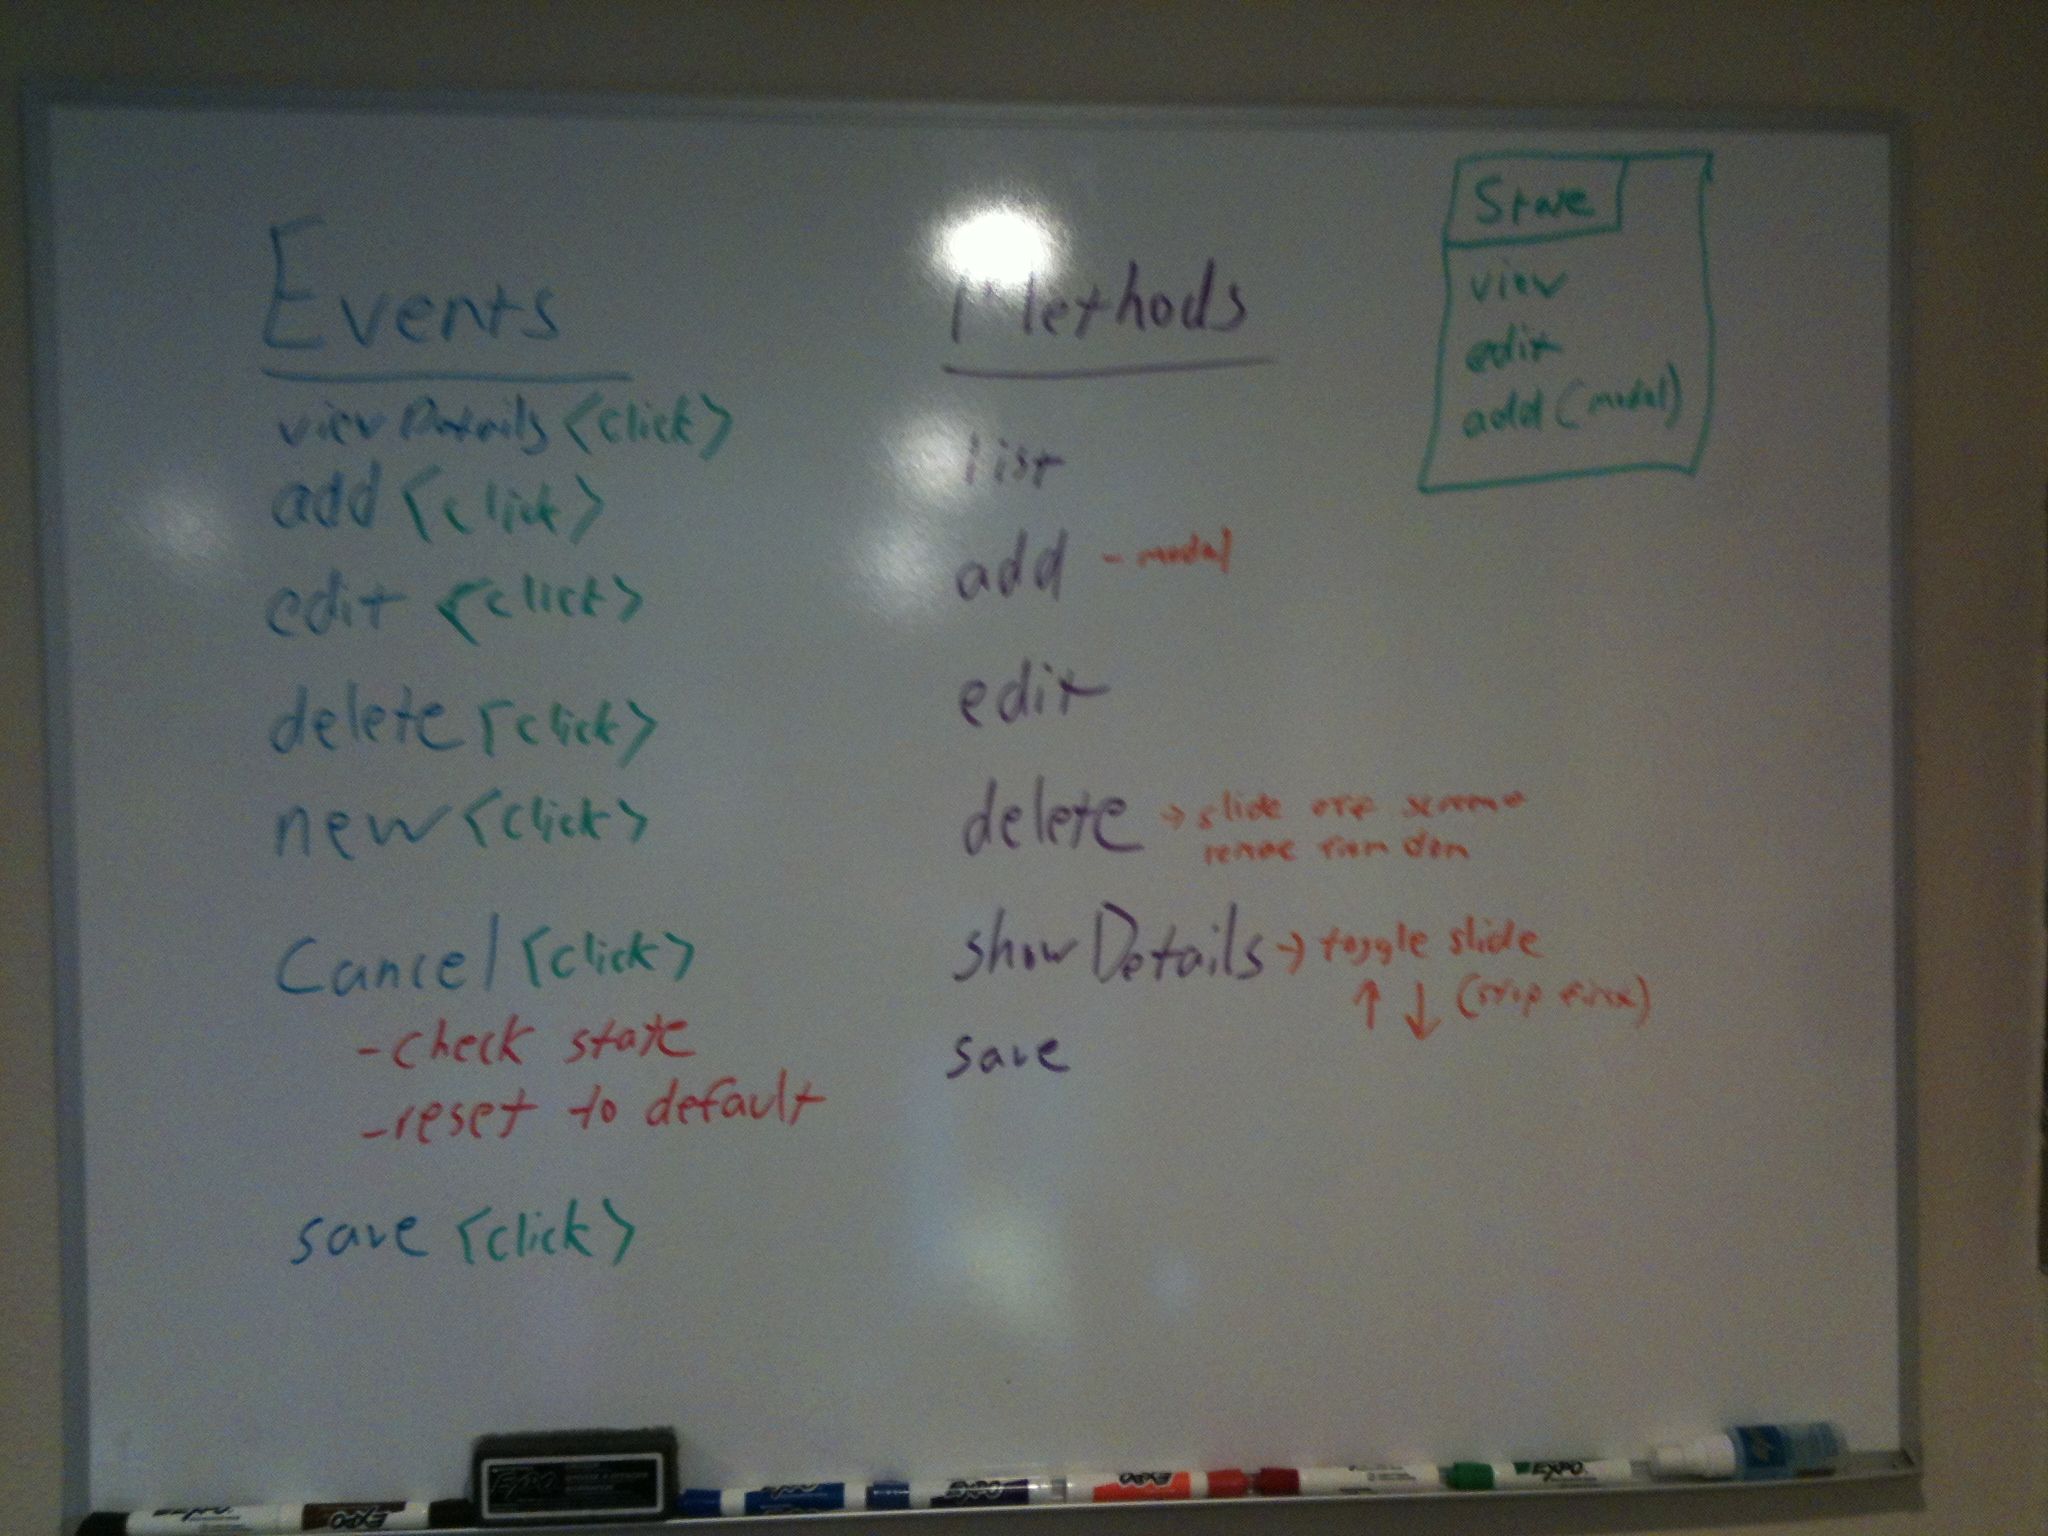 Events
viewDetails <click>
add <click>
edit <click>
delete <click>
new <click>
Cancel <click>
- check state
- reset to default
save <click>
Methods
list
add - modal
edit
delete → slide off screen
remove from dom
showDetails → toggle slide
↑ ↓ (stop first)
save
State
view
edit
add (modal)
EXPO
EXPO
EXPO
EXPO
EXPO
EXPO